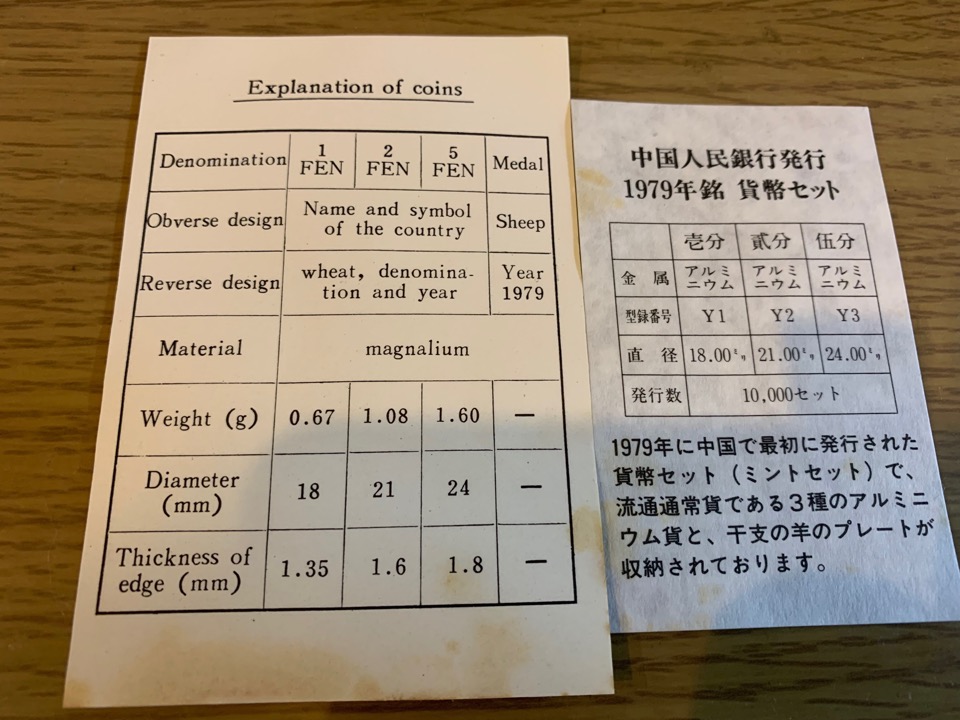 Explanation of coins
Denomination 1 FEN 2 FEN 5 FEN Medal
Obverse design Name and symbol of the country Sheep
Reverse design wheat, denomina-tion and year Year 1979
Material magnalium
Weight (g) 0.67 1.08 1.60 —
Diameter (mm) 18 21 24 —
Thickness of edge (mm) 1.35 1.6 1.8 —
中国人民銀行発行
1979年銘 貨幣セット
壱分 貳分 伍分
金属 アルミニウム アルミニウム アルミニウム
型録番号 Y1 Y2 Y3
直径 18.00ミリ 21.00ミリ 24.00ミリ
発行数 10,000セット
1979年に中国で最初に発行された
貨幣セット（ミントセット）で、
流通通常貨である3種のアルミニ
ウム貨と、干支の羊のプレートが
収納されております。